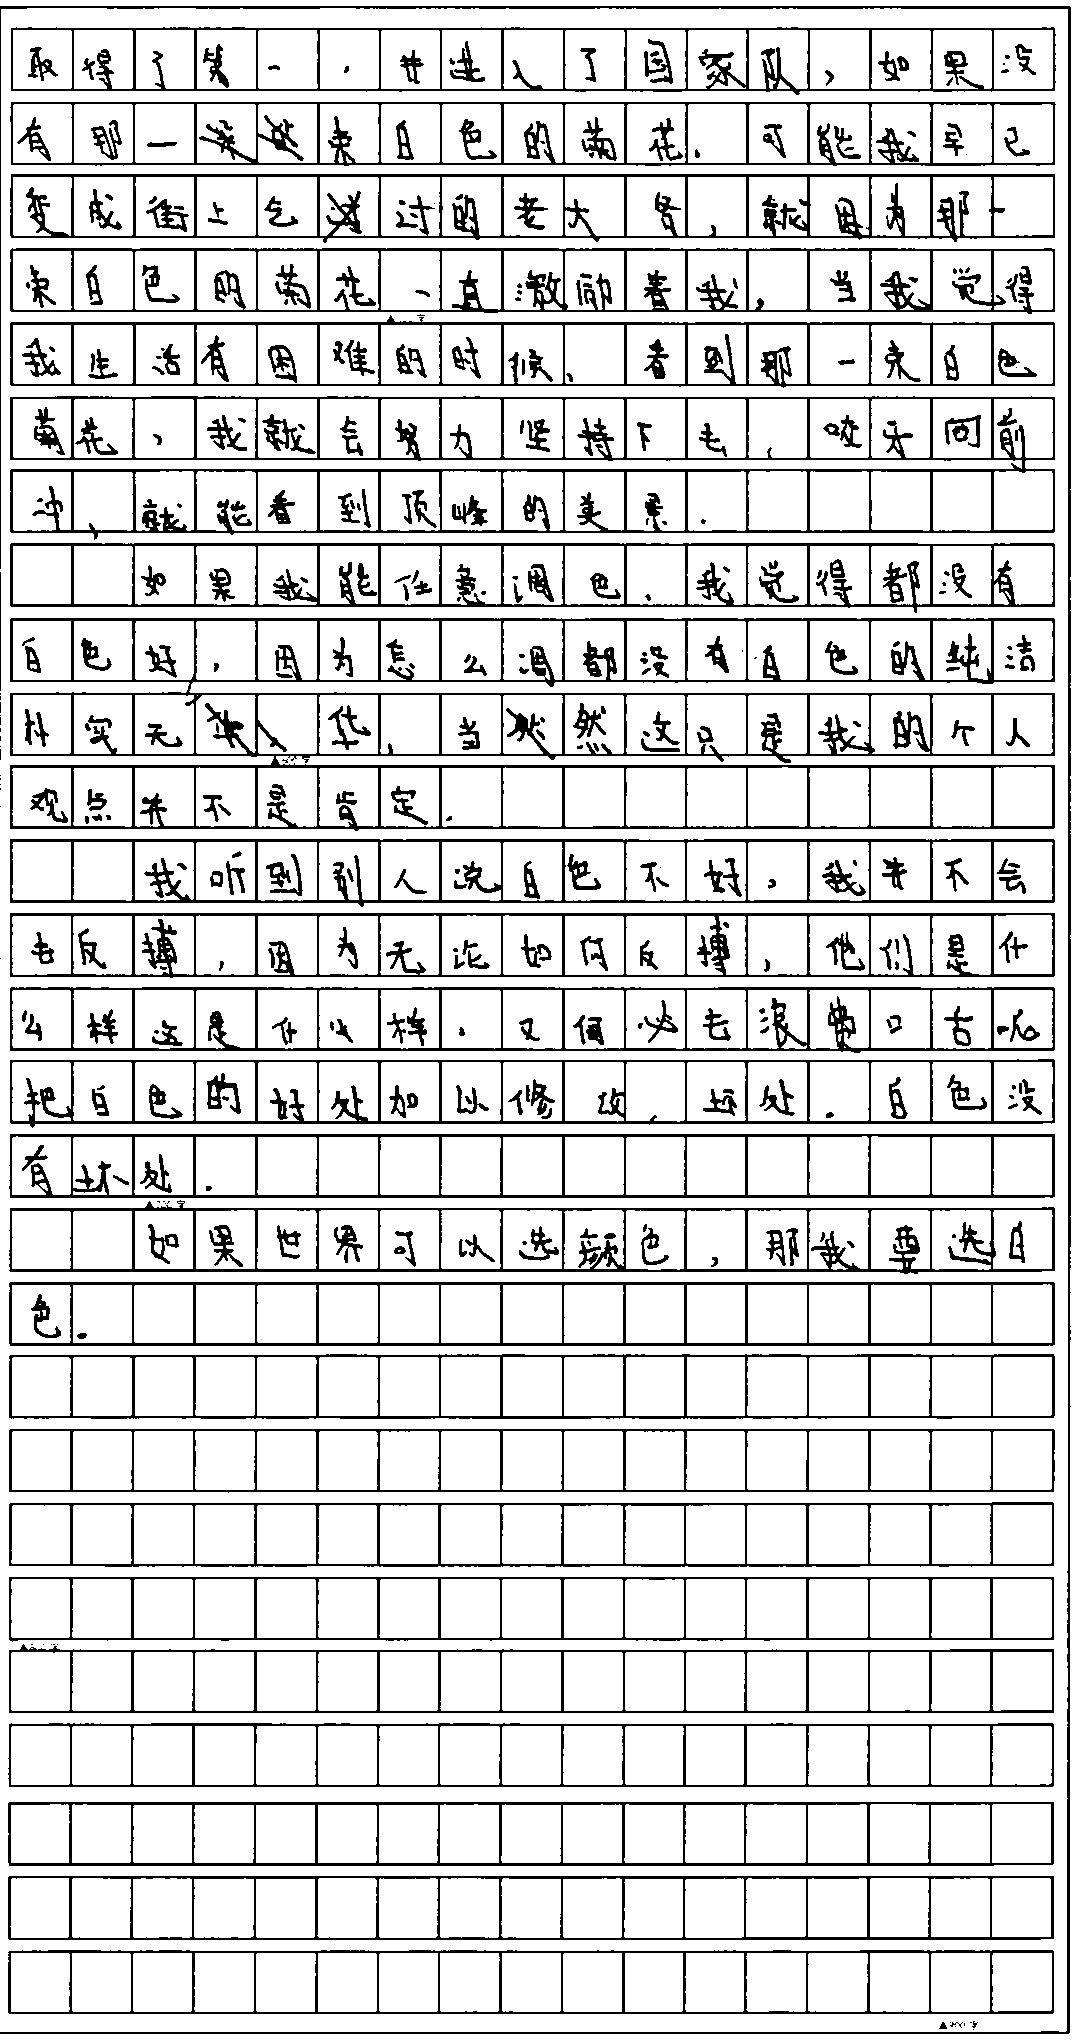 取得了第一．并进入了国家队，如果没
有那一束白色的菊花．可能我早已
变成街上乞讨的老大爷，就因为那一
束白色的菊花一直激励着我，当我觉得
我生活有困难的时候、看到那一束白色
菊花，我就会努力坚持下去，咬牙向前
冲，就能看到顶峰的美景．
如果我能任意调色．我觉得都没有
白色好，因为怎么调都没有白色的纯洁
朴实无华，当然这只是我的个人
观点并不是肯定．
我听到别人说白色不好，我并不会
去反搏，因为无论如何反搏，他们是什
么样这是什么样．又何必去浪费口舌呢
把白色的好处加以修改，坏处．白色没
有坏处．
如果世界可以选颜色，那我要选白
色．